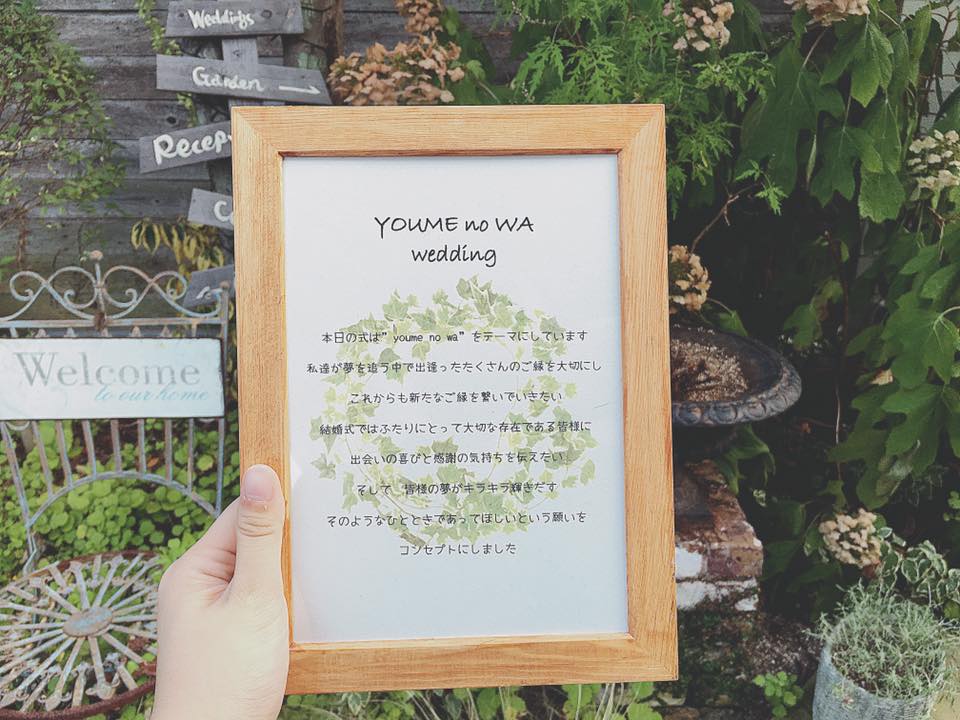 Weddings
Garden
Recep
Welcome
to our home
YOUME no WA
wedding
本日の式は”youme no wa”をテーマにしています
私達が夢を追う中で出逢ったたくさんのご縁を大切にし
これからも新たなご縁を繋いでいきたい
結婚式ではふたりにとって大切な存在である皆様に
出会いの喜びと感謝の気持ちを伝えたい
そして 皆様の夢がキラキラ輝きだす
そのようなひとときであってほしいという願いを
コンセプトにしました